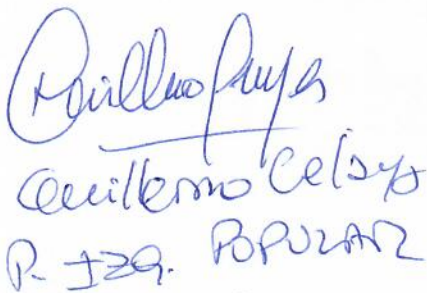 Guillermo
Guillermo Celaya
P. IZQ. POPULAR